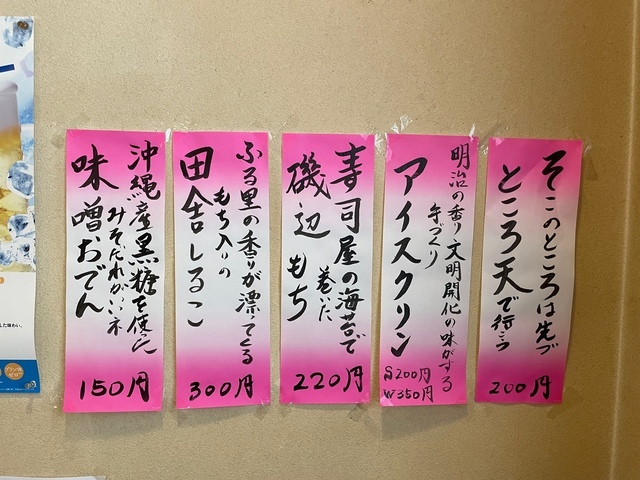 そこのところは先づ
ところ天で行こう
200円
明治の香り文明開化の味がする
手づくり
アイスクリン
S200円
W350円
寿司屋の海苔で
巻いた
磯辺もち
220円
ふる里の香りが漂てくる
もち入りの
田舎しるこ
300円
沖縄産黒糖を使った
みそだれがいいネ
味噌おでん
150円